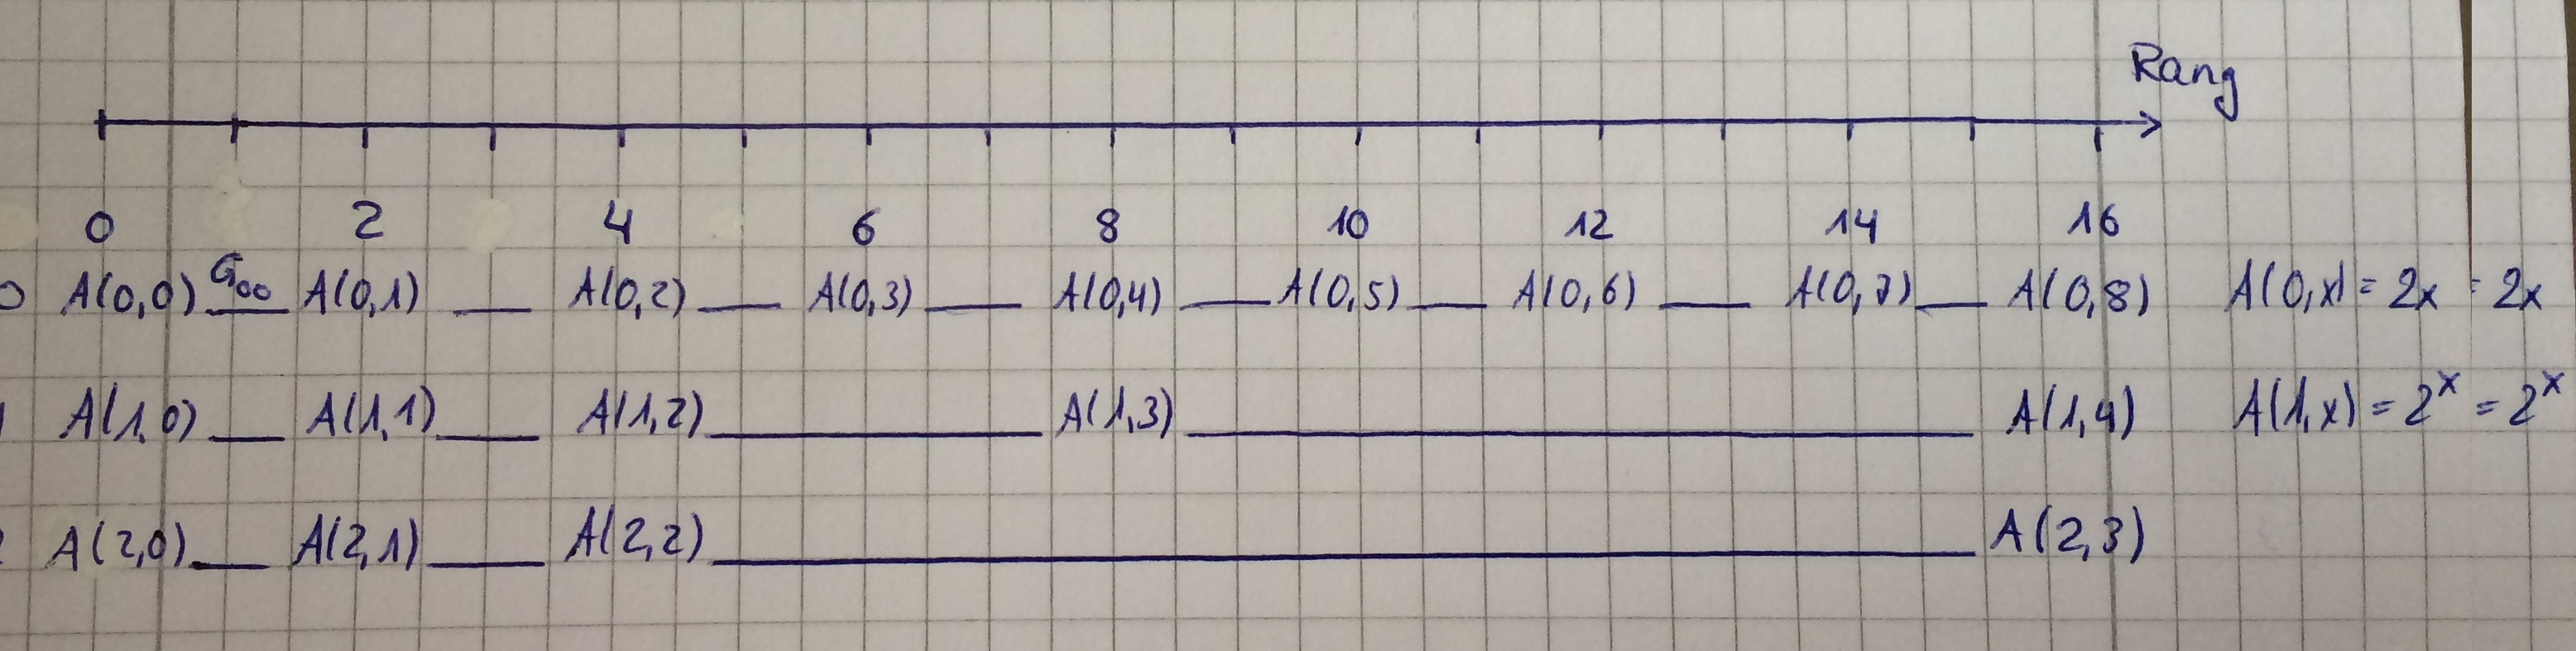 Rang
0 2 4 6 8 10 12 14 16
0 A(0,0) G₀₀ A(0,1) A(0,2) A(0,3) A(0,4) A(0,5) A(0,6) A(0,7) A(0,8) A(0,x) = 2x = 2x
1 A(1,0) A(1,1) A(1,2) A(1,3) A(1,4) A(1,x) = 2ˣ = 2ˣ
2 A(2,0) A(2,1) A(2,2) A(2,3)